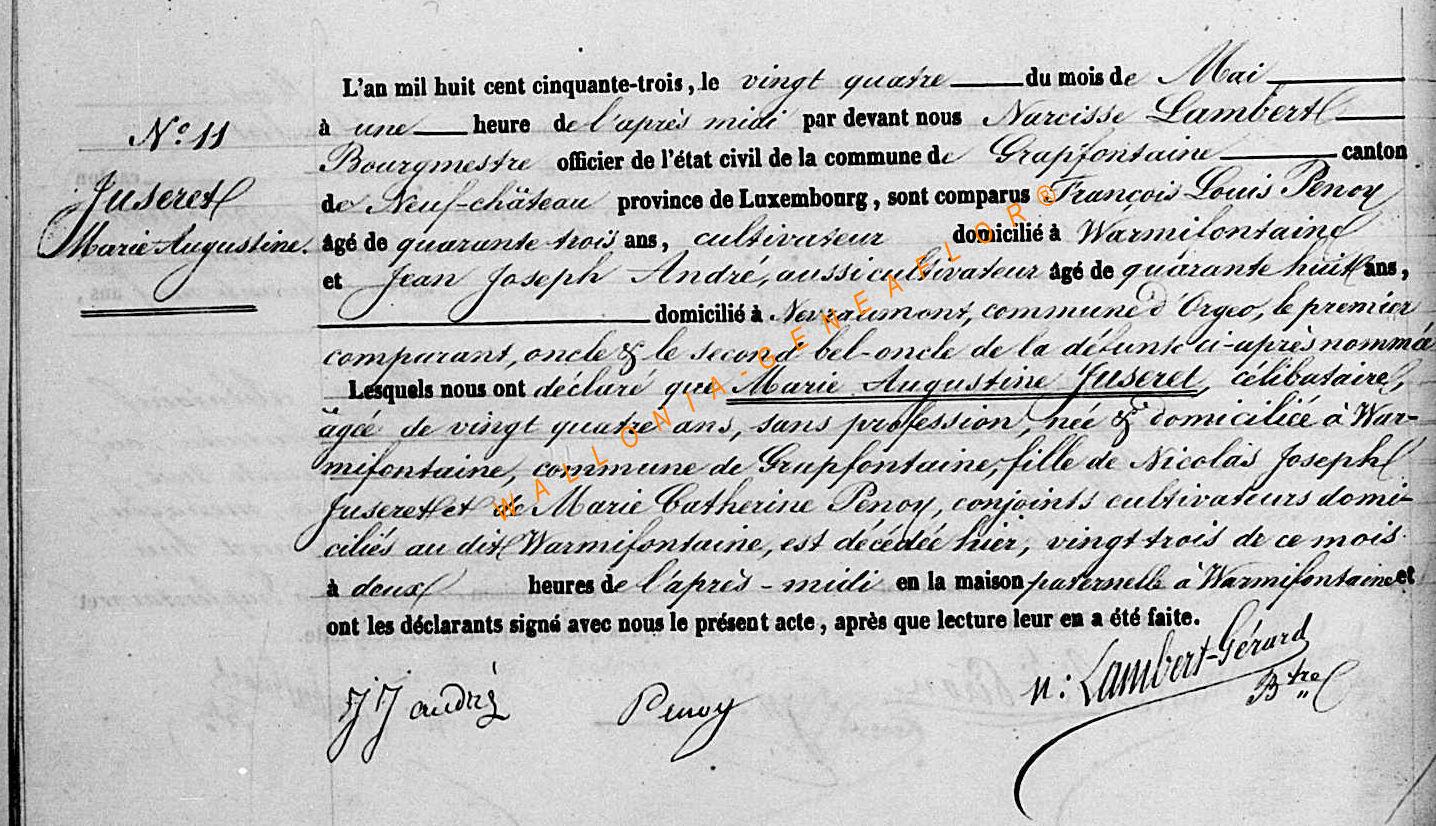 L'an mil huit cent cinquante-trois, le vingt quatre du mois de Mai
N.º 11
à une heure de l'après midi par devant nous Narcisse Lambert
Bourgmestre officier de l'état civil de la commune de Grapfontaine canton
Juseret
Marie Augustine.
de Neuf-château province de Luxembourg, sont comparus François Louis Penoy
âgé de quarante trois ans, cultivateur domicilié à Warmifontaine
et Jean Joseph André, aussi cultivateur âgé de quarante huit ans,
domicilié à Nevraumont, commune d'Orgeo, le premier
comparant, oncle & le second bel-oncle de la défunte ci-après nommée
Lesquels nous ont déclaré que Marie Augustine Juseret, célibataire,
âgée de vingt quatre ans, sans profession, née & domiciliée à War-
mifontaine, commune de Grapfontaine, fille de Nicolas Joseph
Juseret et de Marie Catherine Penoy, conjoints cultivateurs domi-
ciliés au dit Warmifontaine, est décédée hier, vingt trois de ce mois
à deux heures de l'après-midi en la maison paternelle à Warmifontaine et
ont les déclarants signé avec nous le présent acte, après que lecture leur en a été faite.
JJ andré Penoy n: Lambert-Gérard
Btre
WALLONIA-GENEAFLOR®